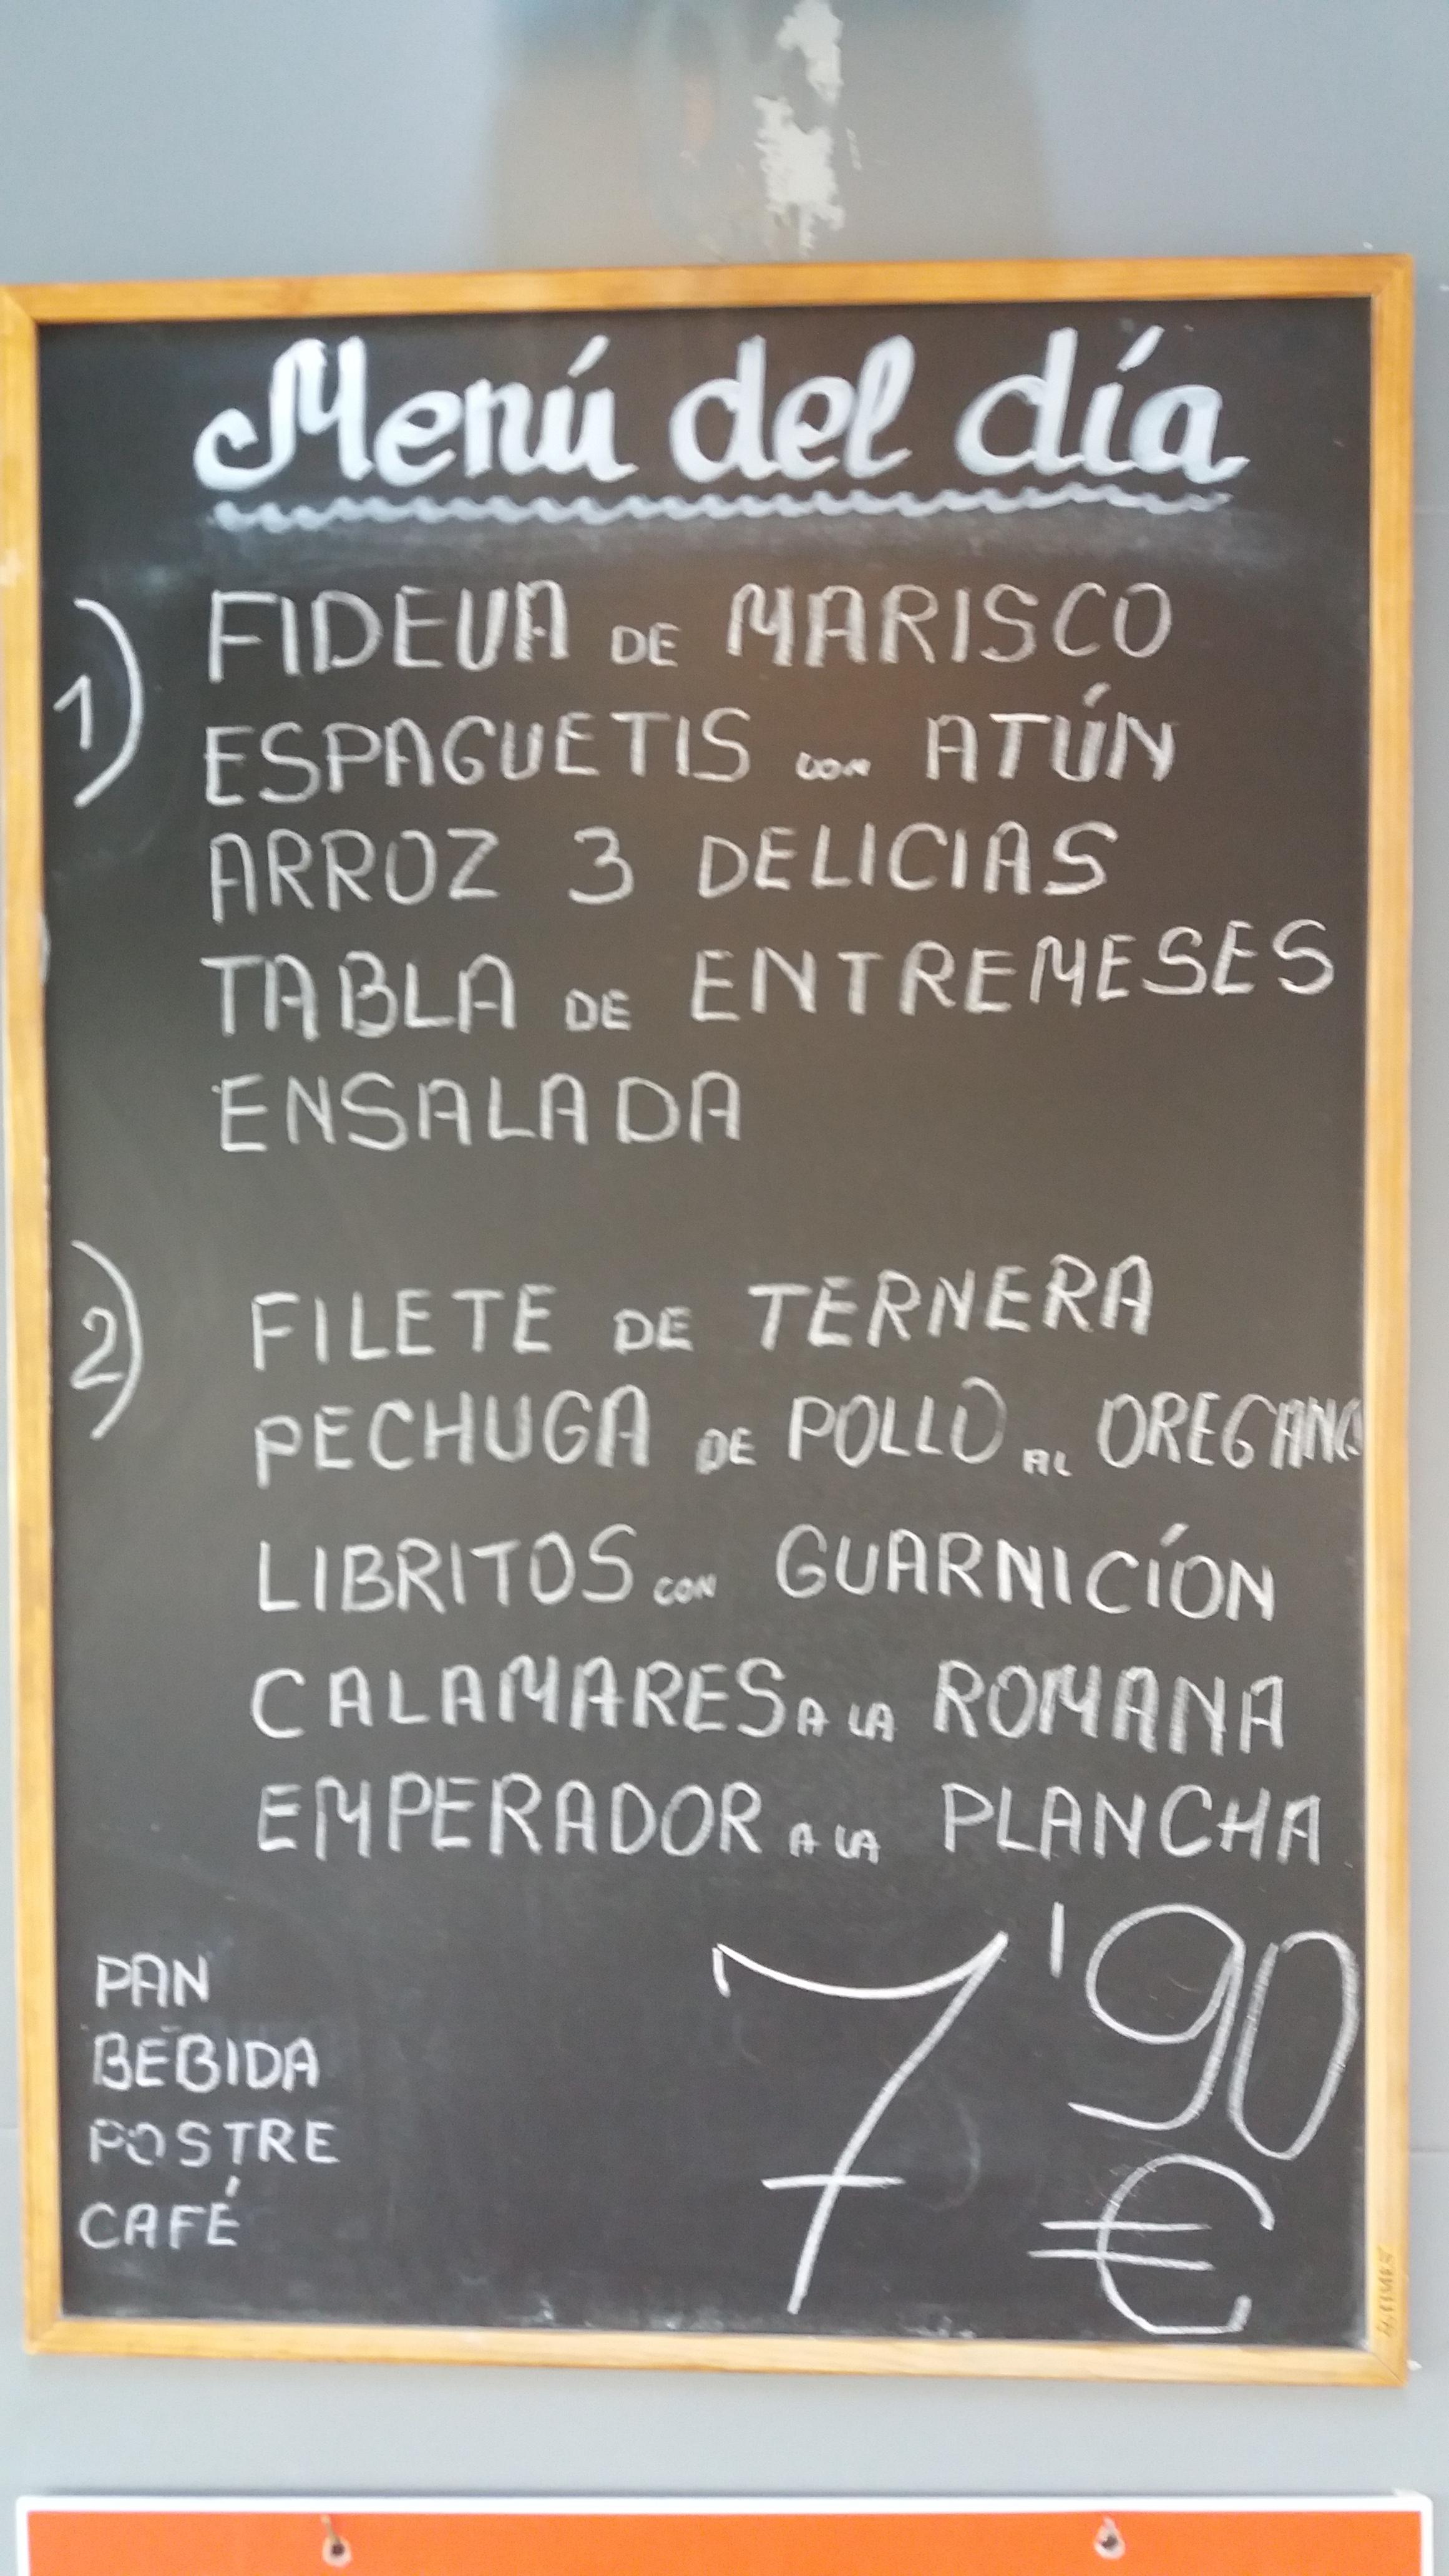 Menú del día
1)
FIDEUA DE MARISCO
ESPAGUETIS CON ATÚN
ARROZ 3 DELICIAS
TABLA DE ENTREMESES
ENSALADA
2)
FILETE DE TERNERA
PECHUGA DE POLLO AL OREGANO
LIBRITOS CON GUARNICÍON
CALAMARES A LA ROMANA
EMPERADOR A LA PLANCHA
PAN
BEBIDA
POSTRE
CAFÉ
7'90
€